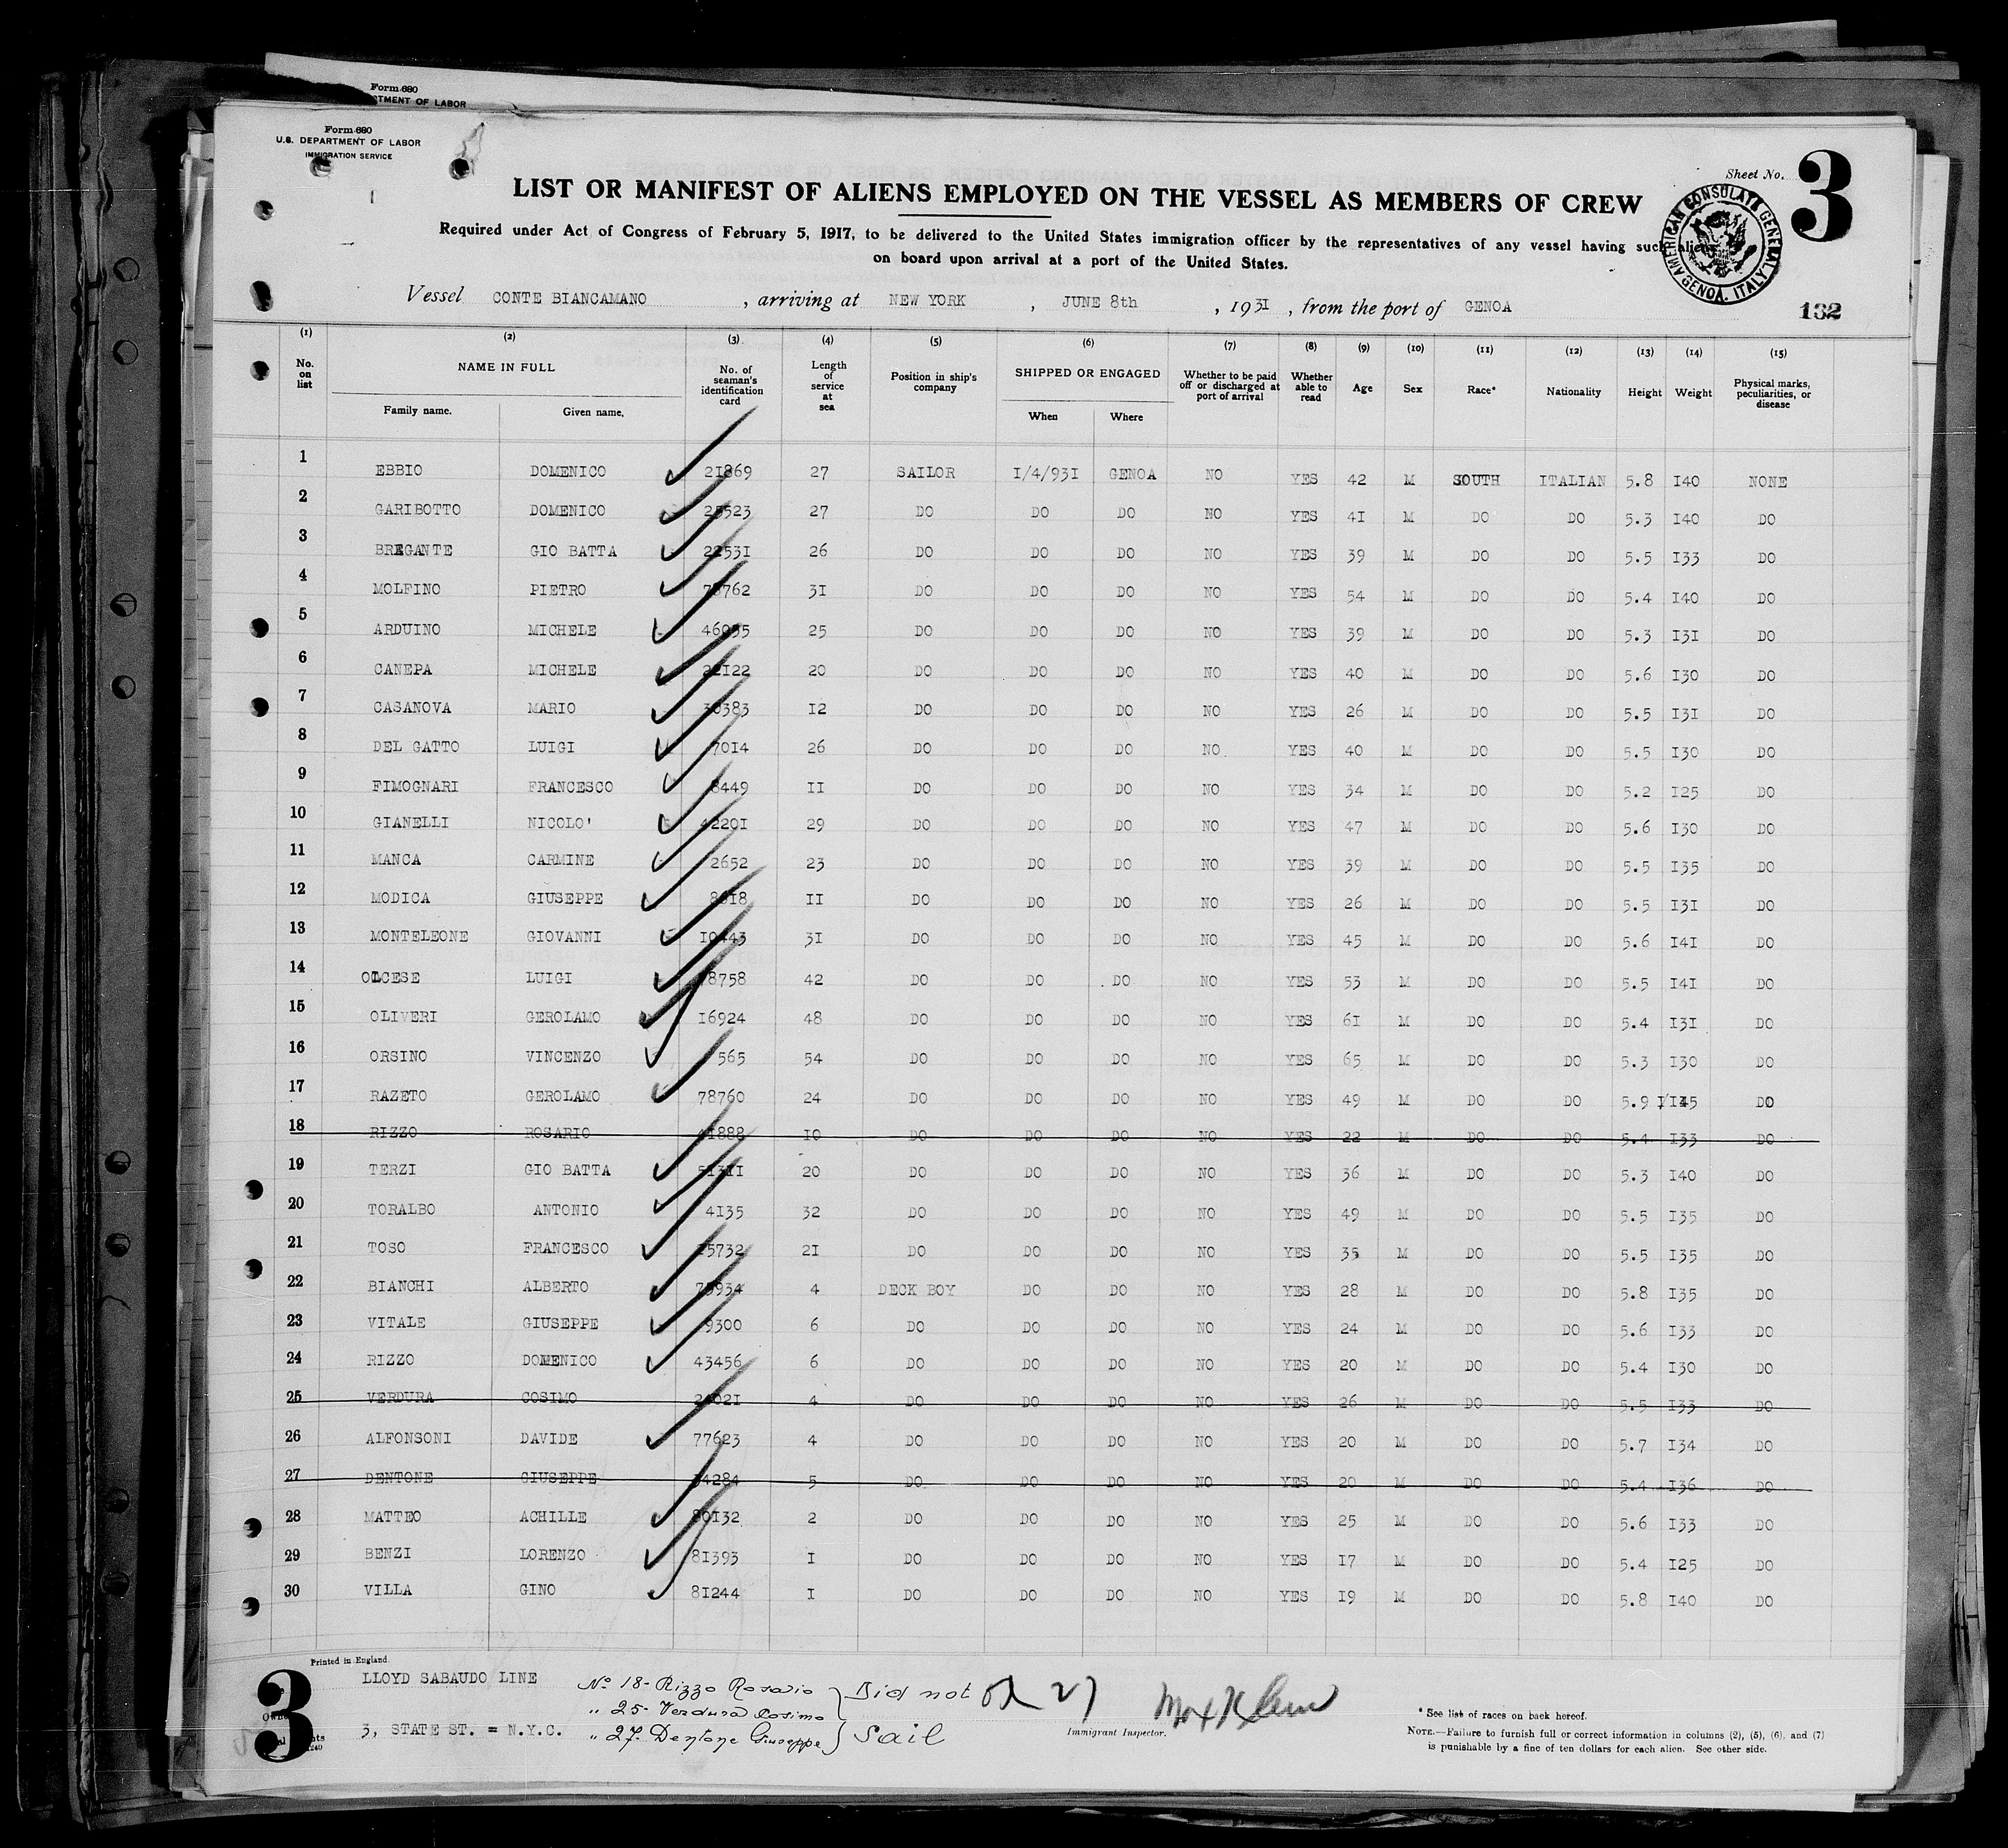 Form 680
TMENT OF LABOR
Form 680
U.S. DEPARTMENT OF LABOR
IMMIGRATION SERVICE
Sheet No. 3
LIST OR MANIFEST OF ALIENS EMPLOYED ON THE VESSEL AS MEMBERS OF CREW
AMERICAN CONSULATE GENERAL GENOA, ITALY
Required under Act of Congress of February 5, 1917, to be delivered to the United States immigration officer by the representatives of any vessel having such aliens
on board upon arrival at a port of the United States.
Vessel CONTE BIANCAMANO , arriving at NEW YORK , JUNE 8th , 1931 , from the port of GENOA
132
(1) (2) (3) (4) (5) (6) (7) (8) (9) (10) (11) (12) (13) (14) (15)
No. on list NAME IN FULL Family name. Given name. No. of seaman's identification card Length of service at sea Position in ship's company SHIPPED OR ENGAGED When Where Whether to be paid off or discharged at port of arrival Whether able to read Age Sex Race* Nationality Height Weight Physical marks, peculiarities, or disease
1 EBBIO DOMENICO 21869 27 SAILOR 1/4/931 GENOA NO YES 42 M SOUTH ITALIAN 5.8 140 NONE
2 GARIBOTTO DOMENICO 27 DO DO DO NO YES 41 M DO DO 5.3 140 DO
3 BREGANTE GIO BATTA 22531 26 DO DO DO NO YES 39 M DO DO 5.5 133 DO
4 MOLFINO PIETRO 31 DO DO DO NO YES 54 M DO DO 5.4 140 DO
5 ARDUINO MICHELE 25 DO DO DO NO YES 39 M DO DO 5.3 131 DO
6 CANEPA MICHELE 22122 20 DO DO DO NO YES 40 M DO DO 5.6 130 DO
7 CASANOVA MARIO 30383 12 DO DO DO NO YES 26 M DO DO 5.5 131 DO
8 DEL GATTO LUIGI 7014 26 DO DO DO NO YES 40 M DO DO 5.5 130 DO
9 FIMOGNARI FRANCESCO 8449 11 DO DO DO NO YES 34 M DO DO 5.2 125 DO
10 GIANELLI NICOLO' 42201 29 DO DO DO NO YES 47 M DO DO 5.6 130 DO
11 MANCA CARMINE 2652 23 DO DO DO NO YES 39 M DO DO 5.5 135 DO
12 MODICA GIUSEPPE 11 DO DO DO NO YES 26 M DO DO 5.5 131 DO
13 MONTELEONE GIOVANNI 10443 31 DO DO DO NO YES 45 M DO DO 5.6 141 DO
14 OLCESE LUIGI 42 DO DO DO NO YES 53 M DO DO 5.5 141 DO
15 OLIVERI GEROLAMO 16924 48 DO DO DO NO YES 61 M DO DO 5.4 131 DO
16 ORSINO VINCENZO 565 54 DO DO DO NO YES 65 M DO DO 5.3 130 DO
17 RAZETO GEROLAMO 78760 24 DO DO DO NO YES 49 M DO DO 5.9 145 DO
18 RIZZO ROSARIO 41888 10 DO DO DO NO YES 22 M DO DO 5.4 133 DO
19 TERZI GIO BATTA 51311 20 DO DO DO NO YES 36 M DO DO 5.3 140 DO
20 TORALBO ANTONIO 4135 32 DO DO DO NO YES 49 M DO DO 5.5 135 DO
21 TOSO FRANCESCO 21 DO DO DO NO YES 35 M DO DO 5.5 135 DO
22 BIANCHI ALBERTO 4 DECK BOY DO DO NO YES 28 M DO DO 5.8 135 DO
23 VITALE GIUSEPPE 9300 6 DO DO DO NO YES 24 M DO DO 5.6 133 DO
24 RIZZO DOMENICO 43456 6 DO DO DO NO YES 20 M DO DO 5.4 130 DO
25 VERDURA COSIMO 4 DO DO DO NO YES 26 M DO DO 5.5 133 DO
26 ALFONSONI DAVIDE 77623 4 DO DO DO NO YES 20 M DO DO 5.7 134 DO
27 DENTONE GIUSEPPE 5 DO DO DO NO YES 20 M DO DO 5.4 136 DO
28 MATTEO ACHILLE 80132 2 DO DO DO NO YES 25 M DO DO 5.6 133 DO
29 BENZI LORENZO 81393 1 DO DO DO NO YES 17 M DO DO 5.4 125 DO
30 VILLA GINO 81244 1 DO DO DO NO YES 19 M DO DO 5.8 140 DO
Printed in England.
3
LLOYD SABAUDO LINE
3, STATE ST. = N.Y.C.
No 18- Rizzo Rosario
" 25- Verdura Cosimo
" 27- Dentone Giuseppe
Did not
Sail
27
Immigrant Inspector.
* See list of races on back hereof.
NOTE.—Failure to furnish full or correct information in columns (2), (5), (6), and (7)
is punishable by a fine of ten dollars for each alien. See other side.